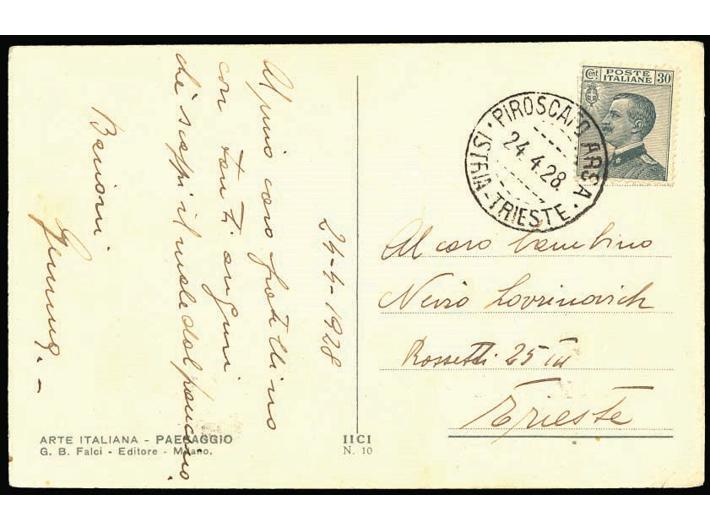 24-4-1928
Al mio caro fratellino
con tanti auguri
che scappi il male dal pancino.
Bacioni
Gemma. -
Cent POSTE ITALIANE 30
PIROSCAFO ARSA
24.4.28.
ISTRIA-TRIESTE
Al caro bambino
Nevio Lovrinovich
Rossetti 25 III
Trieste
ARTE ITALIANA - PAESAGGIO
G. B. Falci - Editore - Milano.
IICI
N. 10